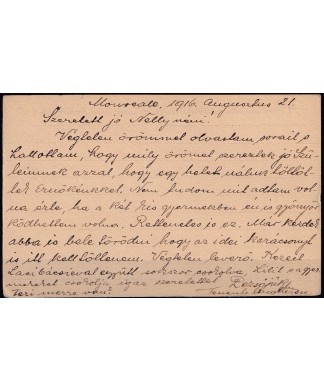 Monreale, 1916. Augusztus 21.
Szeretett jó Nelly néni!
Végtelen örömmel olvastam sorait s
hallottam, hogy mily örömet szereztek jó Szü-
leimnek azzal, hogy egy hetet náluk töltöt-
tek Ernőkénkkel. Nem tudom mit adtam vol-
na érte, ha a két kis gyermekben én is gyönyör-
ködhettem volna. Rettenetes is ez. Már kezdek
abba is bele törődni hogy az idei karácsonyt
is itt kell töltenem. Végtelen leverő. Kezeit
Laci bácsiéval együtt sokszor csókolva, Lilit s a gyer-
mekeket csókolja igaz szeretettel
Feri merre van?